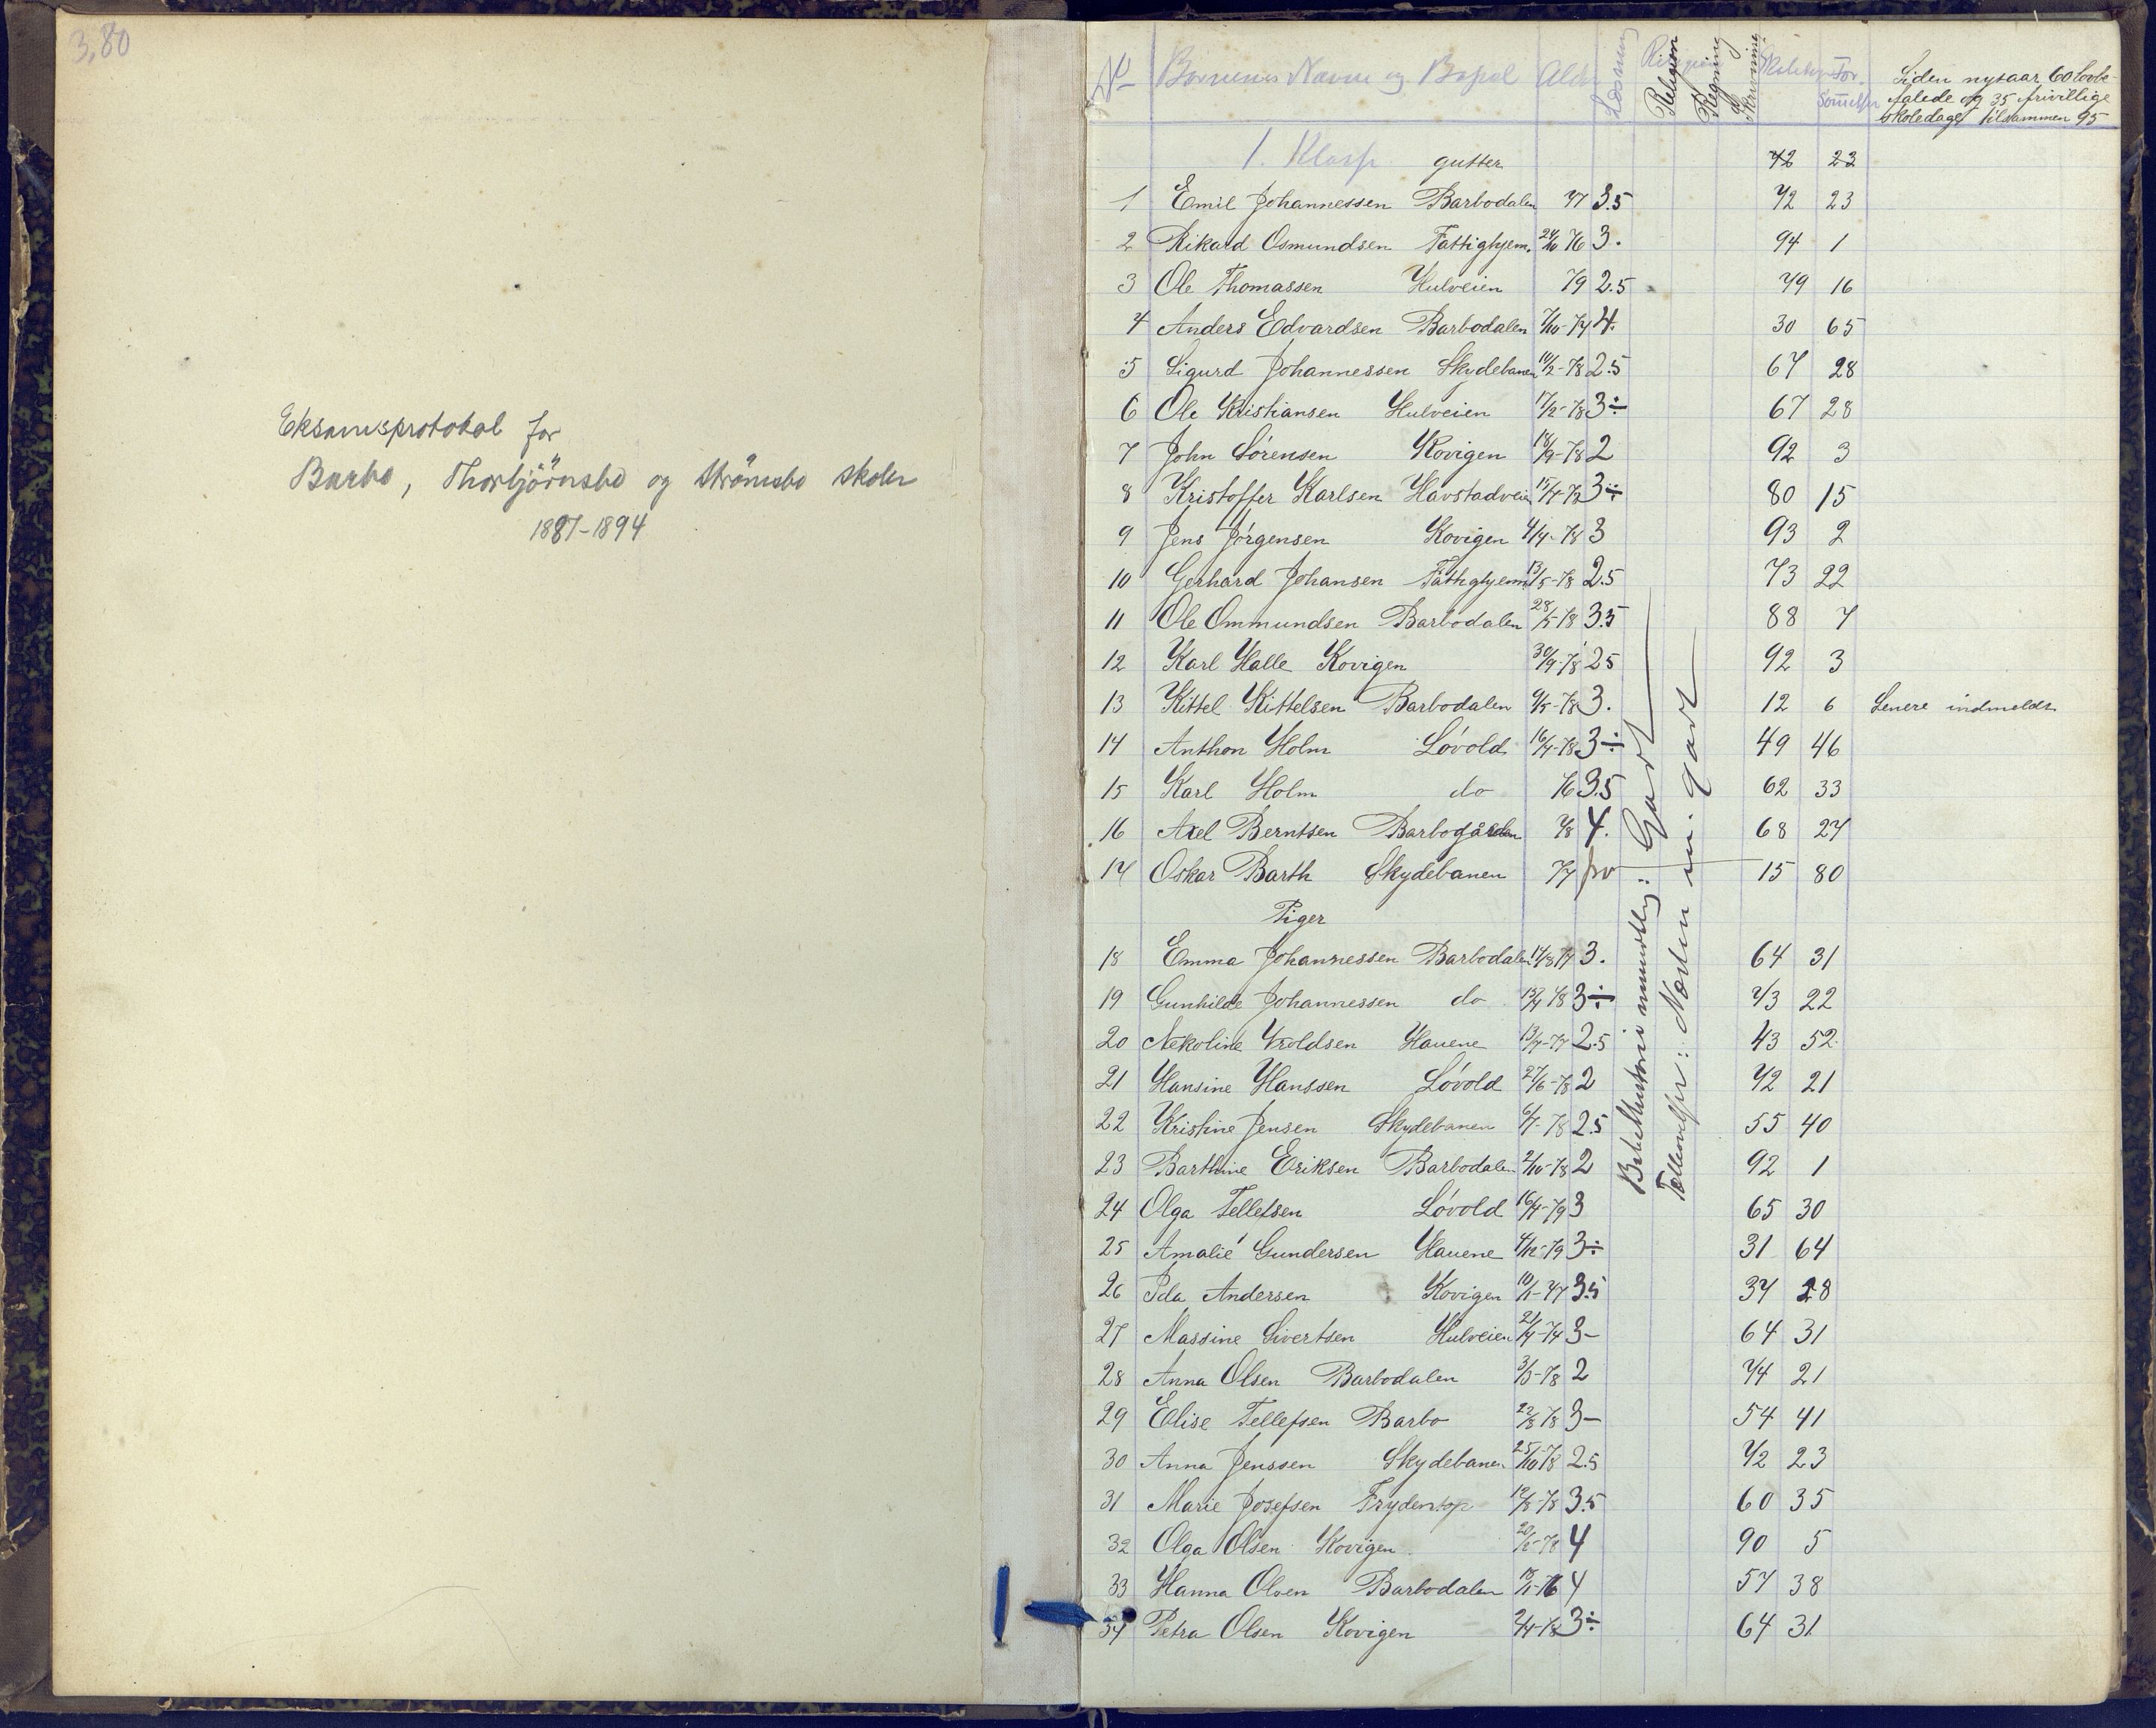 3,80
Eksamensprotokol for
Barbo, Thorbjörnsbo og Strömsbo skoler
1887-1894
No Børnenes Navne og Bopæl Alder Læsning Religion Religion Regning Skrivning Skoledage Forsømmelser
Siden nytaar 60 lovbe-
falede og 35 frivillige
skoledage tilsammen 95
1. Klasse gutter 72 23
1 Emil Johannessen Barbodalen 77 3.5 72 23
2 Rikard Osmundsen Fattighjem. 24/10 76 3. 94 1
3 Ole Thomassen Hulveien 79 2.5 79 16
4 Anders Edvardsen Barbodalen 7/10-77 4. 30 65
5 Sigurd Johannessen Skydebanen 10/2-78 2.5 67 28
6 Ole Kristiansen Hulveien 17/2-78 3÷ 67 28
7 John Sörensen Kovigen 18/9-78 2 92 3
8 Kristoffer Karlsen Havstadveien 3÷ 80 15
9 Jens Jörgensen Kovigen 4/4-78 3 93 2
10 Gerhard Johansen Fattighjem 13/5-78 2.5 73 22
11 Ole Ommundsen Barbodalen 28/5 78 3.5 88 7
12 Karl Halle Kovigen 30/9-78 25 92 3
13 Kittel Kittelsen Barbodalen 9/5-78 3. 12 6 Senere indmeldt
14 Anthon Holm Lövold 16/4-78 3÷ 49 46
15 Karl Holm do 76 3.5 62 33
16 Axel Berntsen Barbogården 78 4. 68 27
17 Oskar Barth Skydebanen 77 fra 15 80
Piger
18 Emma Johannessen Barbodalen 14/8 77 3. 64 31
19 Gunhilde Johannessen do 78 3÷ 73 22
20 Nekoline Vroldsen Hauene 13/7-77 2.5 43 52
21 Hansine Hanssen Lövold 27/6-78 2 72 21
22 Kristine Jensen Skydebanen 6/7-78 2.5 55 40
23 Barthine Eriksen Barbodalen 2/10-78 2 92 1
24 Olga Tellefsen Lövold 16/4-79 3 65 30
25 Amalie Gundersen Hauene 4/12-79 3÷ 31 64
26 Ida Andersen Kovigen 10/1-77 3.5 37 28
27 Massine Sivertsen Hulveien 21/4-74 3- 64 31
28 Anna Olsen Barbodalen 3/3-78 2 74 21
29 Elise Tellefsen Barbo 22/8 78 3- 54 41
30 Anna Jenssen Skydebanen 25/10 78 2.5 72 23
31 Marie Josefsen Frydentop 12/8-78 3.5 60 35
32 Olga Olsen Kovigen 20/2-78 4 90 5
33 Hanna Olsen Barbodalen 18/1-76 4 57 38
34 Petra Olsen Kovigen 2/4-78 3÷ 64 31
Bibelhistorie mundtlig: Godt
Tælleøvelser: Næsten m. godt